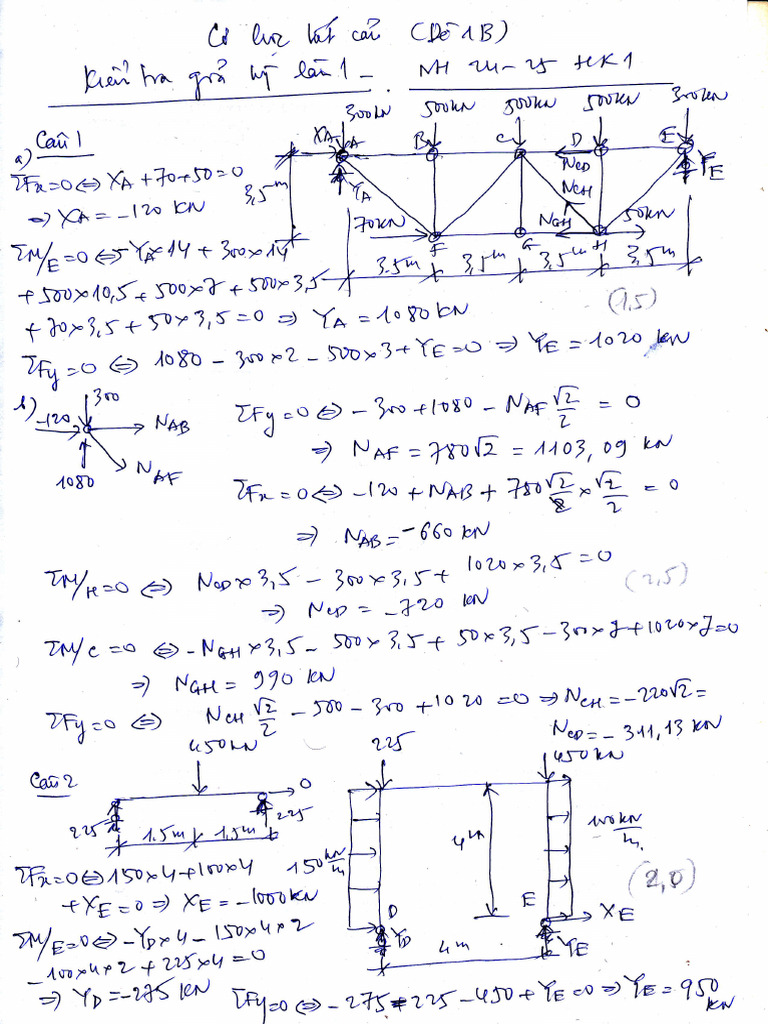 Cơ học kết cấu (Đề 1B)
Kiểm tra giữa kỳ lần 1 - NH 24-25 HK1
Câu 1
a)
300kN 500kN 500kN 500kN 300kN
XA A B C D E
NCD YE
YA NCH
3,5m
70kN NGH 50kN
F G H
3.5m 3,5m 3,5m 3,5m
ΣFx=0 ⇔ XA+70+50=0
⇒ XA = -120 KN
ΣM/E=0 ⇔ YA×14 + 300×14
+500×10,5+500×7+500×3,5
+70×3,5+50×3,5=0 ⇒ YA = 1080kN
(1,5)
ΣFy=0 ⇔ 1080-300×2-500×3+YE=0 ⇒ YE=1020 kN
b)
300
-120 NAB
NAF
1080
ΣFy=0 ⇔ -300+1080-NAF √2/2 = 0
⇒ NAF=780√2 = 1103,09 kN
ΣFx=0 ⇔ -120+NAB+780√2 × √2/2 = 0
⇒ NAB=-660 kN
ΣM/H=0 ⇔ NCD×3,5-300×3,5+1020×3,5=0
(2,5)
⇒ NCD = -720 kN
ΣM/C=0 ⇔ -NGH×3,5-500×3,5+50×3,5-300×7+1020×7=0
⇒ NGH = 990 KN
ΣFy=0 ⇔ NCH √2/2 -500-300+1020=0 ⇒ NCH=-220√2=
NCD=-311,13 KN
Câu 2
450kN 225 450KN
0
225 225
1.5m 1,5m
150 kN/m 4m 100kN/m
(2,0)
D E XE
YD YE
4m
ΣFx=0 ⇔ 150×4+100×4
+XE=0 ⇒ XE=-1000kN
ΣM/E=0 ⇔ -YD×4-150×4×2
-100×4×2+225×4=0
⇒ YD=-275 KN
ΣFy=0 ⇔ -275-225-450+YE=0 ⇒ YE=950 KN